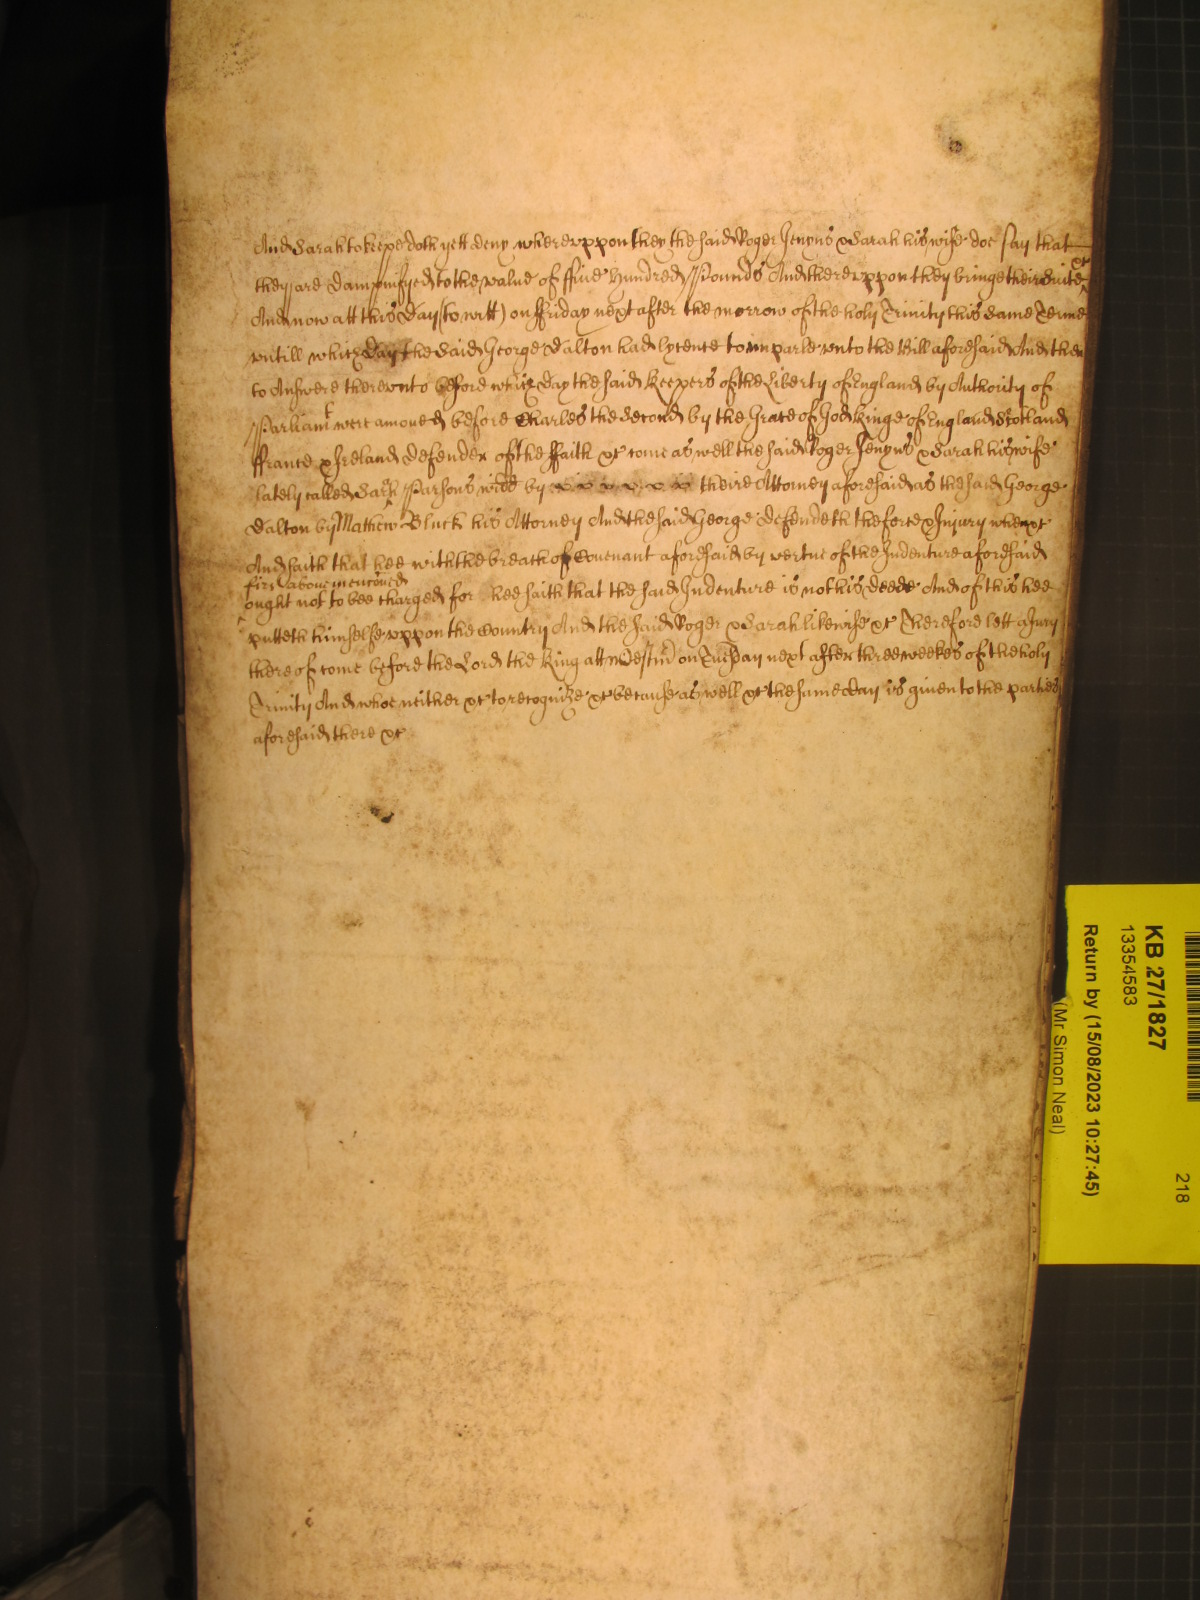 And Sarah to keepe doth yett deny whereuppon they the said Roger Jenyns & Sarah his wife doe say that
they are dampnifyed to the value of ffive hundred Pounds And thereuppon they bringe their suite &c
And now att this day (to witt) on ffriday next after the morrow of the holy Trinity this same Terme
untill which day the said George Dalton had lycence to imparle unto the Bill aforesaid And then
to Answere thereunto before which day the said Keepers of the Liberty of England by Authority of
Parliamt were amoved before Charles the second by the Grace of God Kinge of England Scotland
ffrance & Ireland Defender of the ffaith &c come as well the said Roger Jenyns & Sarah his wife
lately called Sarah Parsons widd by theire Attorney aforesaid as the said George
Dalton by Mathew Bluck his Attorney And the said George defendeth the force & Injury when &c
And saith that hee with the breach of Covenant aforesaid by vertue of the Indenture aforesaid
first above mencioned
ought not to bee charged for hee saith that the said Indenture is not his deede And of this hee
putteth himselfe uppon the Country And the said Roger & Sarah likewise &c Therefore lett a Jury
thereof come before the Lord the King att Westm on Tuesday next after three weekes of the holy
Trinity And whoe neither &c to recognize &c because as well &c the same day is given to the parties
aforesaid there &c
KB 27/1827
13354583
Return by (15/08/2023 10:27:45)
(Mr Simon Neal)
218